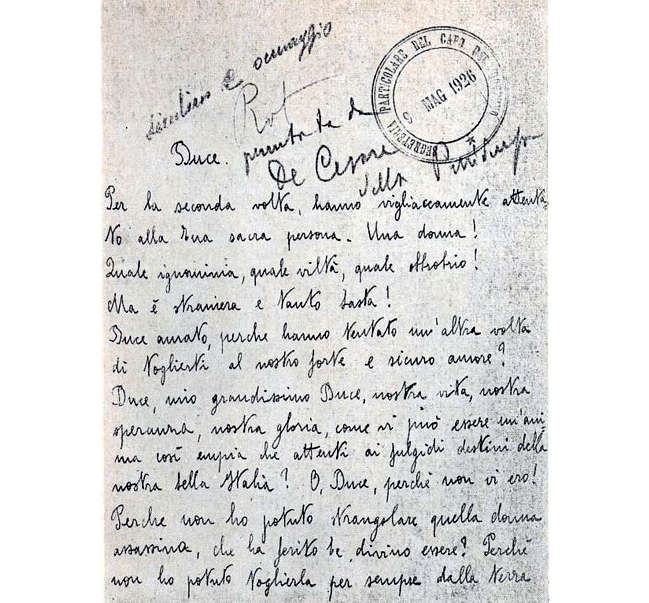 omaggio
SEGRETERIA PARTICOLARE DEL CAPO DEL
9 MAG 1926
presentata da
De Cesare
della
Duce.
Per la seconda volta, hanno vigliaccamente attenta-
to alla Tua sacra persona. Una donna!
Quale ignominia, quale viltà, quale obbrobrio!
Ma è straniera e tanto basta!
Duce amato, perche hanno tentato un'altra volta
di toglierti al nostro forte e sicuro amore?
Duce, mio grandissimo Duce, nostra vita, nostra
speranza, nostra gloria, come vi può essere un'ani-
ma così empia che attenti ai fulgidi destini della
nostra bella Italia? O, Duce, perchè non vi ero!
Perche non ho potuto strangolare quella donna
assassina, che ha ferito te, divino essere? Perchè
non ho potuto toglierla per sempre dalla terra